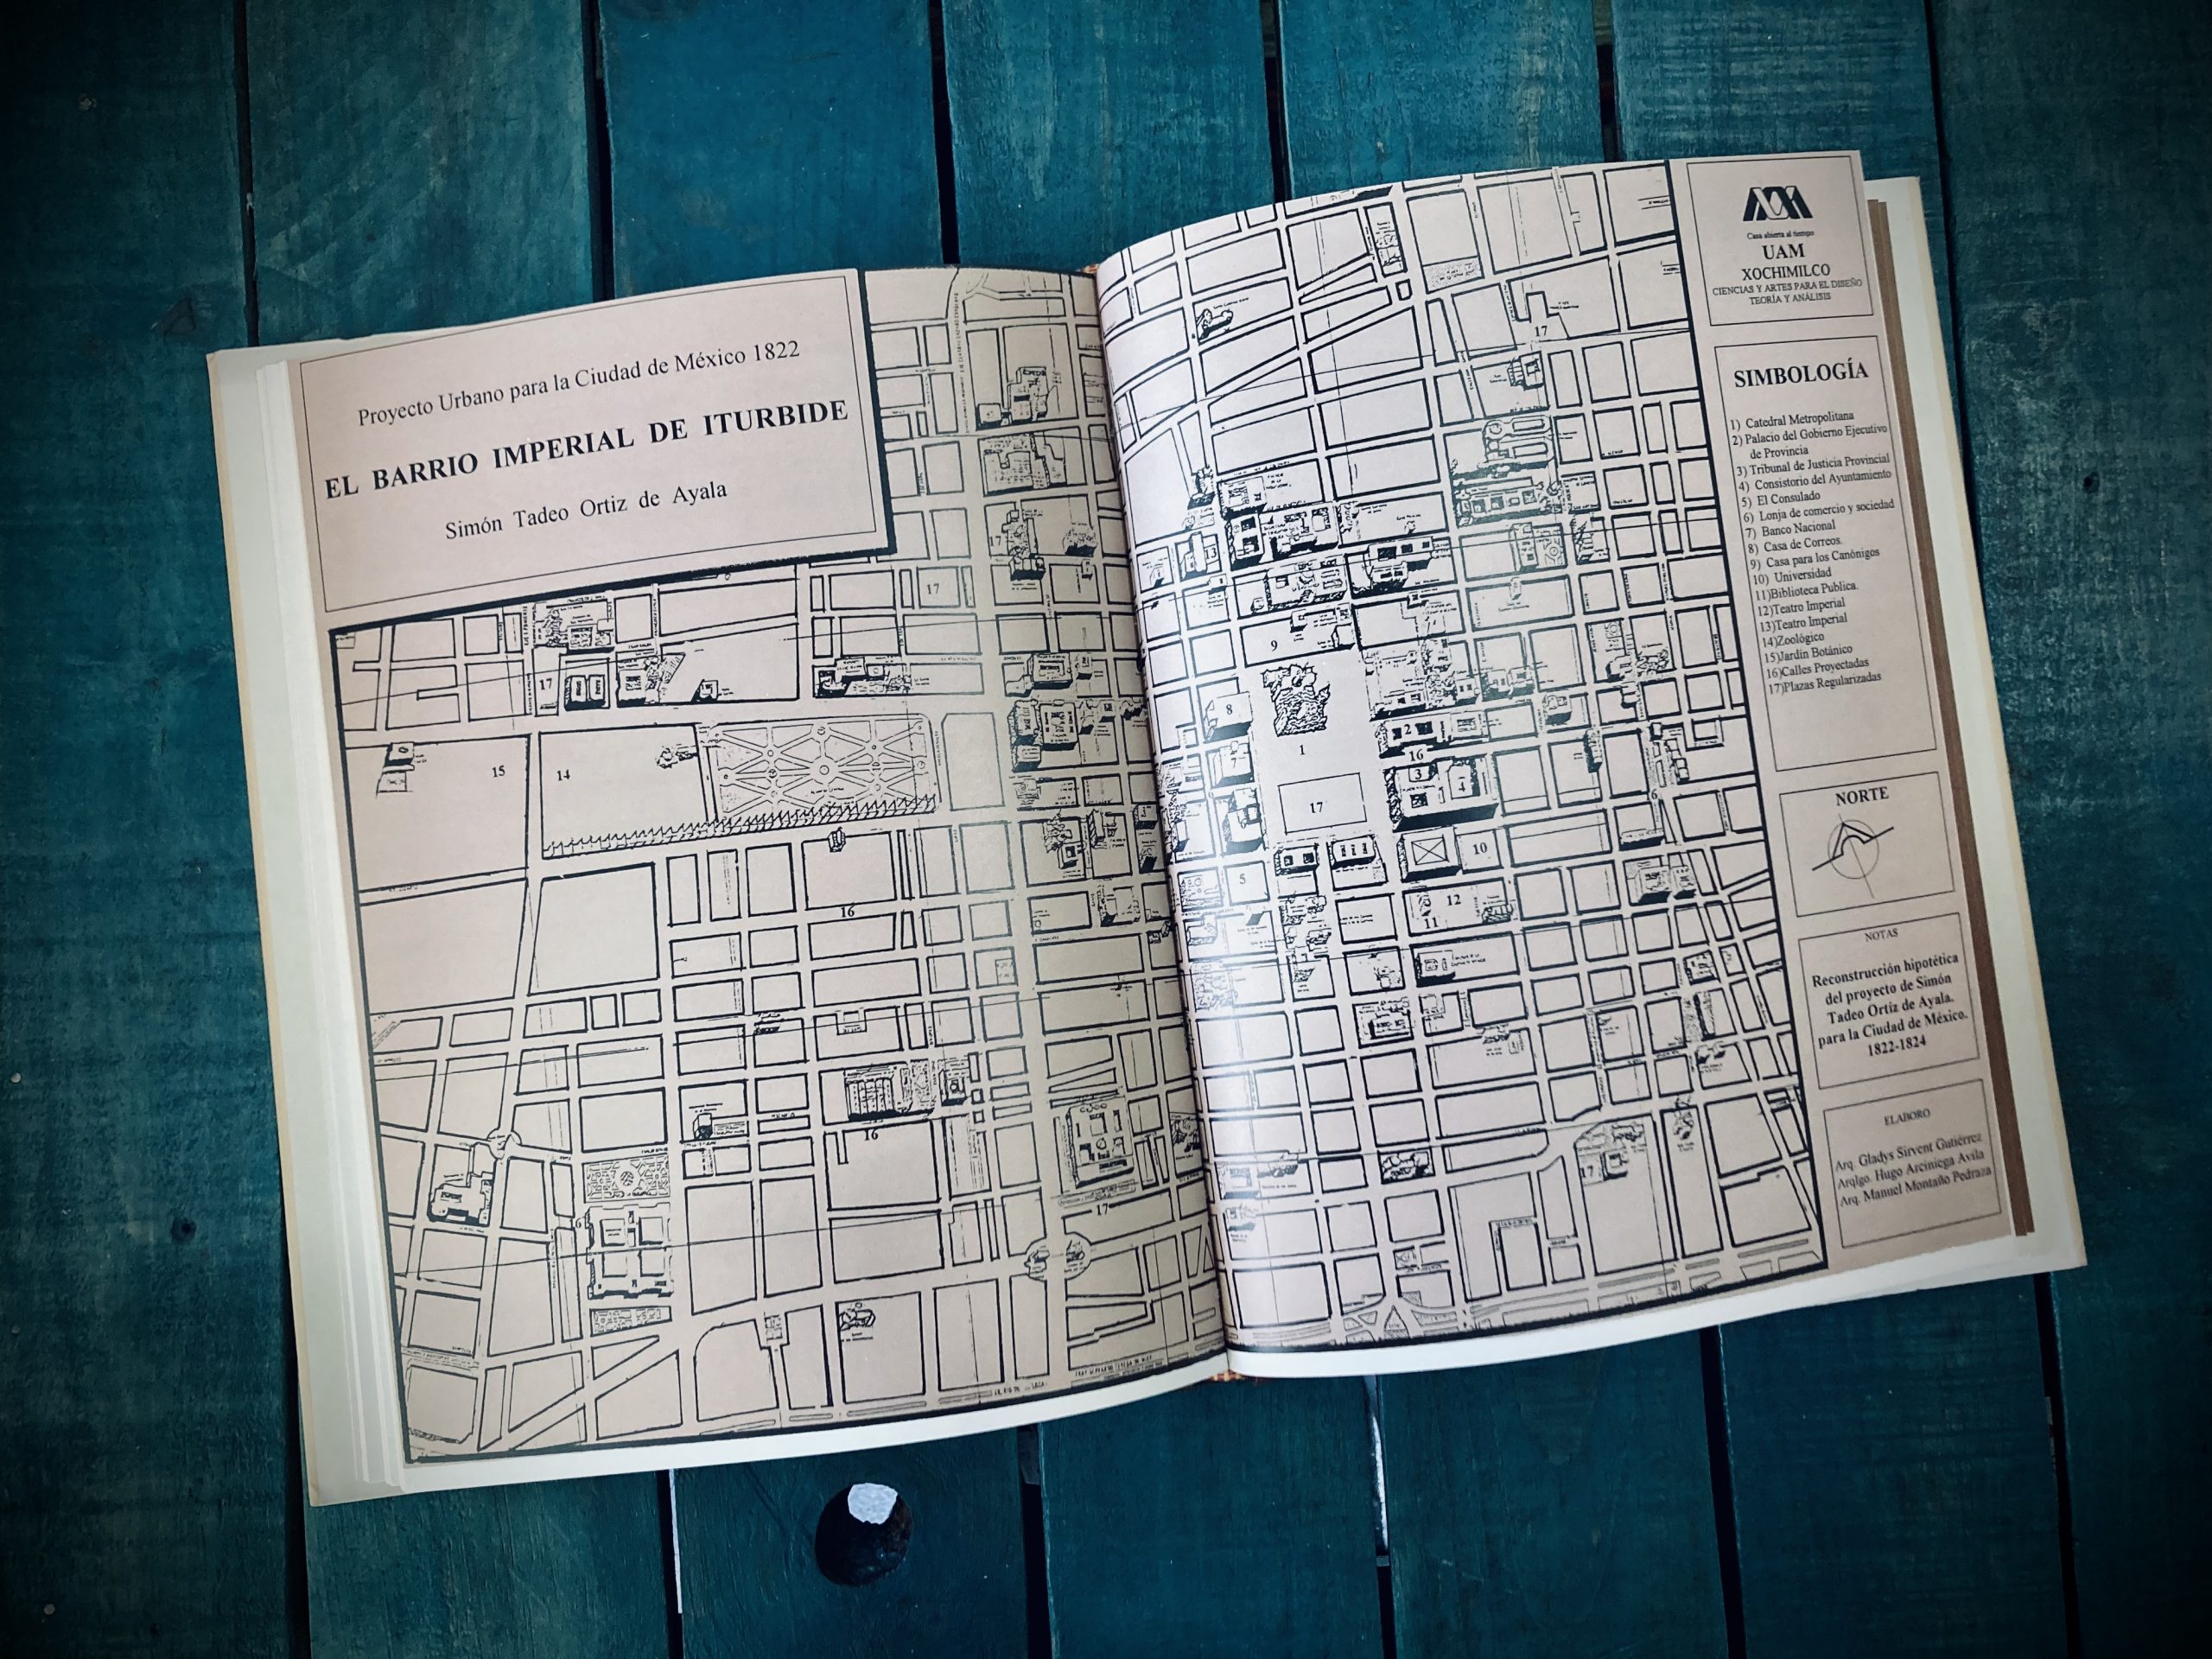 Proyecto Urbano para la Ciudad de México 1822
EL BARRIO IMPERIAL DE ITURBIDE
Simón Tadeo Ortiz de Ayala
17
17
17
15
14
16
16
6
17
17
13
9
8
1
7
2
16
3
4
17
10
5
12
11
6
17
Casa abierta al tiempo
UAM
XOCHIMILCO
CIENCIAS Y ARTES PARA EL DISEÑO
TEORÍA Y ANÁLISIS
SIMBOLOGÍA
1) Catedral Metropolitana
2) Palacio del Gobierno Ejecutivo
de Provincia
3) Tribunal de Justicia Provincial
4) Consistorio del Ayuntamiento
5) El Consulado
6) Lonja de comercio y sociedad
7) Banco Nacional
8) Casa de Correos.
9) Casa para los Canónigos
10) Universidad
11)Biblioteca Publica.
12)Teatro Imperial
13)Teatro Imperial
14)Zoológico
15)Jardín Botánico
16)Calles Proyectadas
17)Plazas Regularizadas
NORTE
NOTAS
Reconstrucción hipotética
del proyecto de Simón
Tadeo Ortiz de Ayala.
para la Ciudad de México.
1822-1824
ELABORO
Arq. Gladys Sirvent Gutiérrez
Arqlgo. Hugo Arciniega Avila
Arq. Manuel Montaño Pedraza